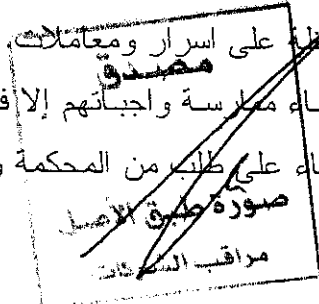 على اسرار ومعاملات
مصدق
ممارسة واجباتهم إلا
على طلب من المحكمة و
صورة طبق الأصل
مراقب الشركات